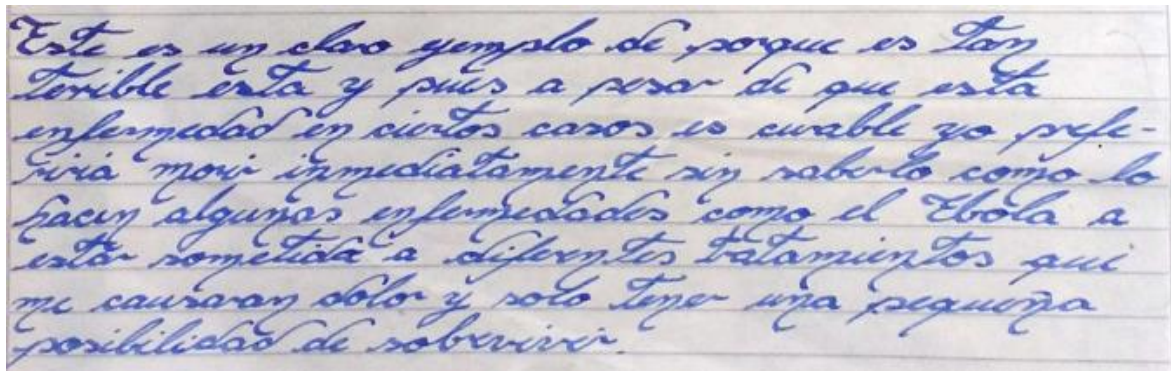 Este es un claro ejemplo de porque es tan
terible esta y pues a pesar de que esta
enfermedad en ciertos casos es curable yo prefe-
riria morir inmediatamente sin saberlo como lo
hacen algunas enfermedades como el Ebola a
estar sometida a diferentes tratamientos que
me causaran dolor y solo tener una pequeña
posibilidad de sobrevivir.